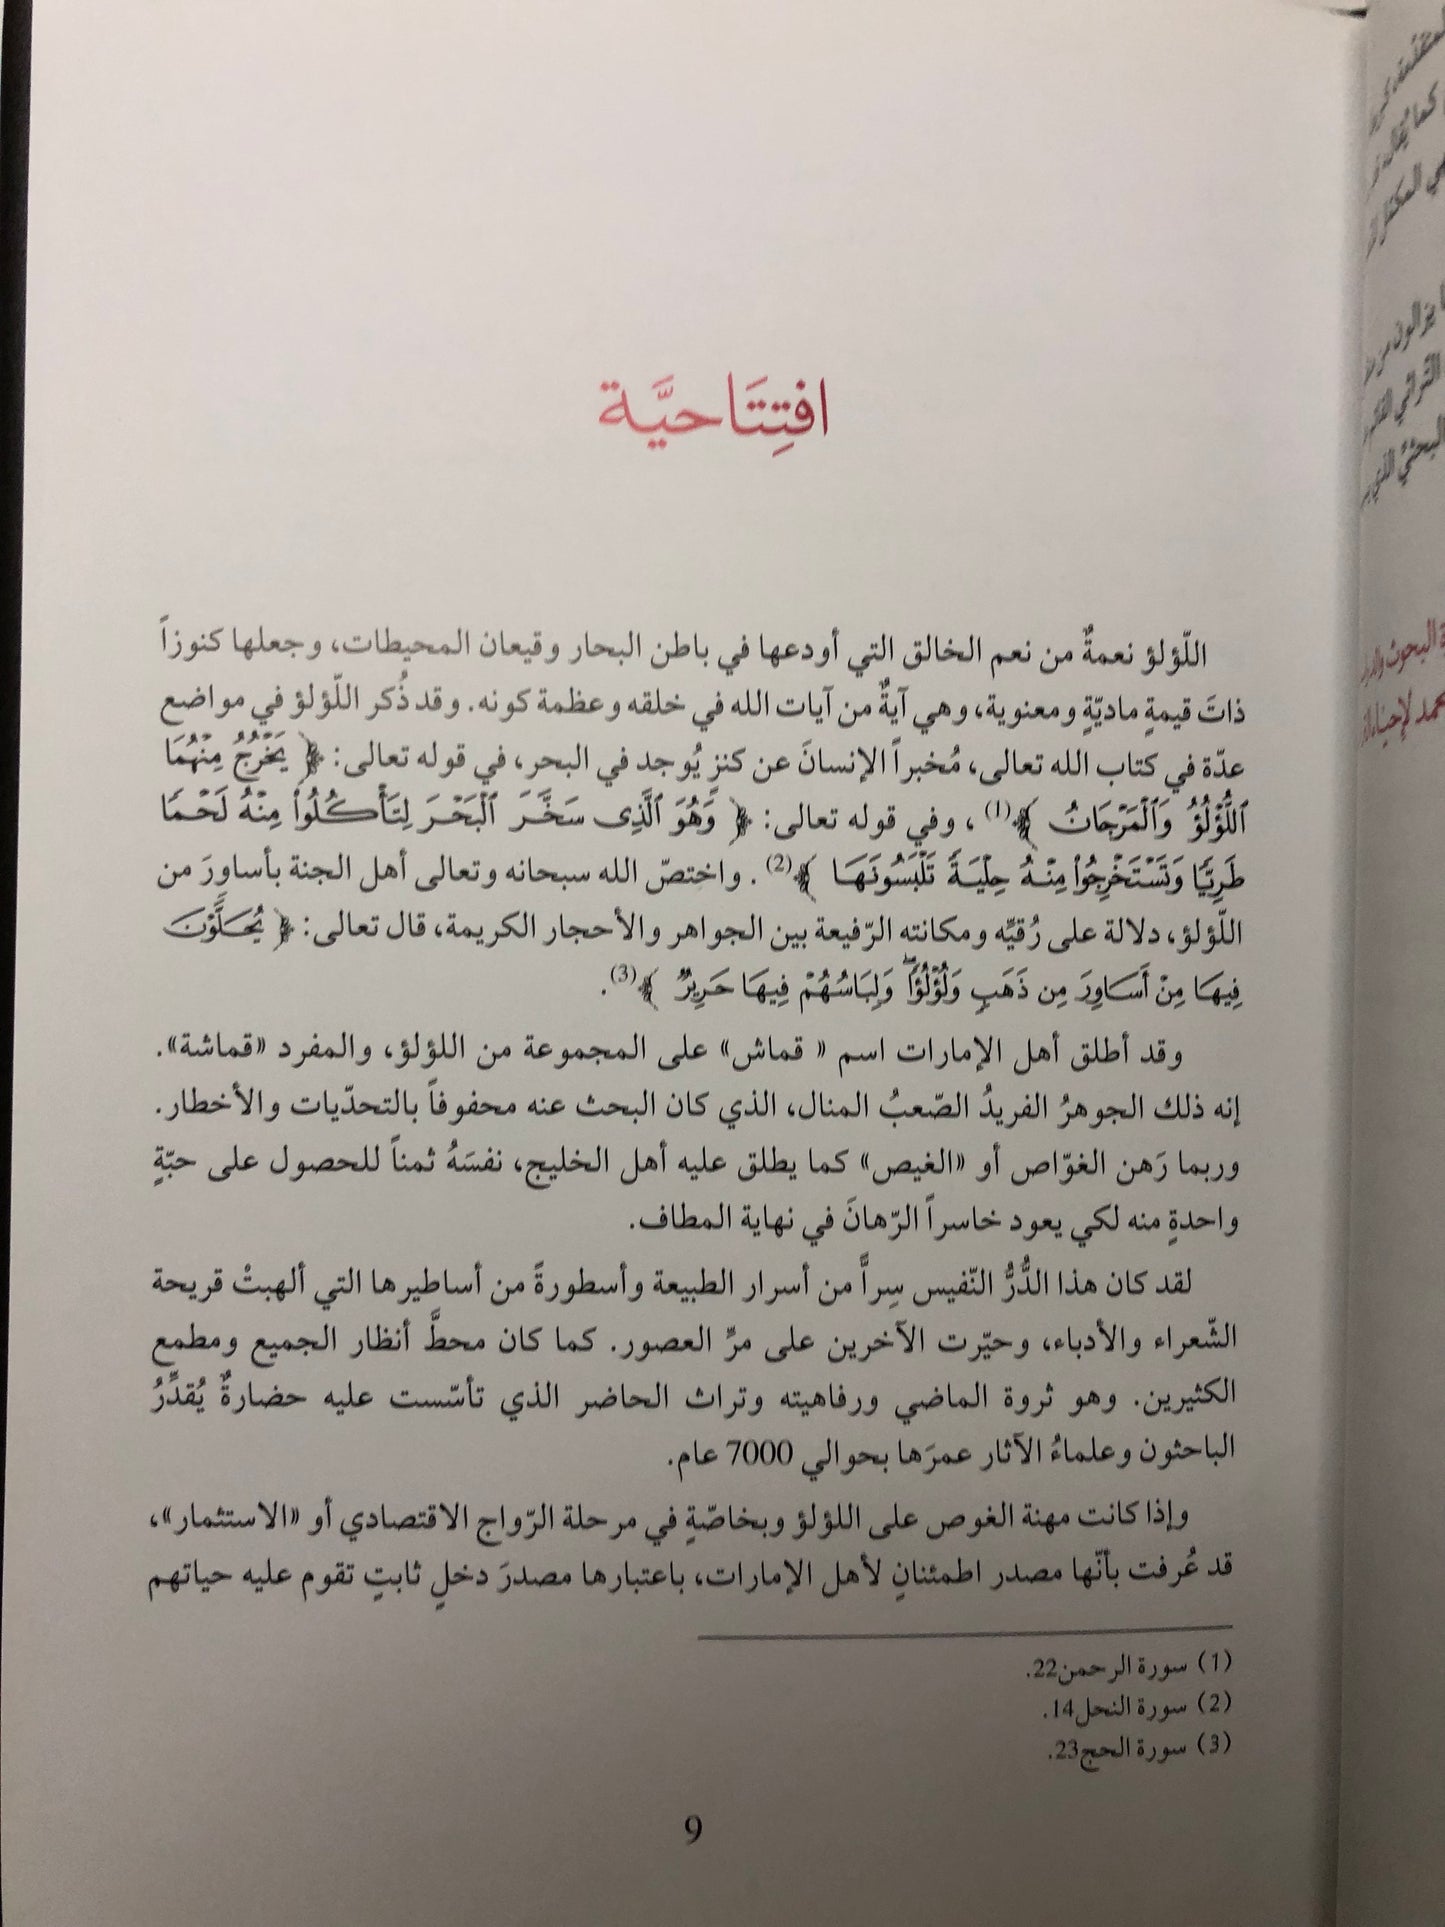 افْتِتَاحيَّة
اللّؤلؤ نعمةٌ من نعم الخالق التي أودعها في باطن البحار وقيعان المحيطات، وجعلها كنوزاً
ذاتَ قيمةٍ ماديّةٍ ومعنوية، وهي آيةٌ من آيات الله في خلقه وعظمة كونه. وقد ذُكر اللّؤلؤ في مواضع
عدّة في كتاب الله تعالى، مُخبراً الإنسانَ عن كنزٍ يُوجد في البحر، في قوله تعالى: ﴿ يَخْرُجُ مِنْهُمَا
ٱللُّؤْلُؤُ وَٱلْمَرْجَانُ ﴾(1)، وفي قوله تعالى: ﴿ وَهُوَ ٱلَّذِى سَخَّرَ ٱلْبَحْرَ لِتَأْكُلُوا۟ مِنْهُ لَحْمًا
طَرِيًّا وَتَسْتَخْرِجُوا۟ مِنْهُ حِلْيَةً تَلْبَسُونَهَا ﴾(2). واختصّ الله سبحانه وتعالى أهل الجنة بأساورَ من
اللّؤلؤ، دلالة على رُقيِّه ومكانته الرّفيعة بين الجواهر والأحجار الكريمة، قال تعالى: ﴿ يُحَلَّوْنَ
فِيهَا مِنْ أَسَاوِرَ مِن ذَهَبٍ وَلُؤْلُؤًا ۖ وَلِبَاسُهُمْ فِيهَا حَرِيرٌ ﴾(3).
وقد أطلق أهل الإمارات اسم « قماش» على المجموعة من اللؤلؤ، والمفرد «قماشة».
إنه ذلك الجوهرُ الفريدُ الصّعبُ المنال، الذي كان البحث عنه محفوفاً بالتحدّيات والأخطار.
وربما رَهن الغوّاص أو «الغيص» كما يطلق عليه أهل الخليج، نفسَهُ ثمناً للحصول على حبّةٍ
واحدةٍ منه لكي يعود خاسراً الرّهانَ في نهاية المطاف.
لقد كان هذا الدُّرُّ النّفيس سِراًّ من أسرار الطبيعة وأسطورةً من أساطيرها التي ألهبتْ قريحة
الشّعراء والأدباء، وحيّرت الآخرين على مرِّ العصور. كما كان محطَّ أنظار الجميع ومطمع
الكثيرين. وهو ثروة الماضي ورفاهيته وتراث الحاضر الذي تأسّست عليه حضارةٌ يُقدِّرُ
الباحثون وعلماءُ الآثار عمرَها بحوالي 7000 عام.
وإذا كانت مهنة الغوص على اللؤلؤ وبخاصّةٍ في مرحلة الرّواج الاقتصادي أو «الاستثمار»،
قد عُرفت بأنّها مصدر اطمئنانٍ لأهل الإمارات، باعتبارها مصدرَ دخلٍ ثابتٍ تقوم عليه حياتهم
(1) سورة الرحمن22.
(2) سورة النحل14.
(3) سورة الحج23.
9